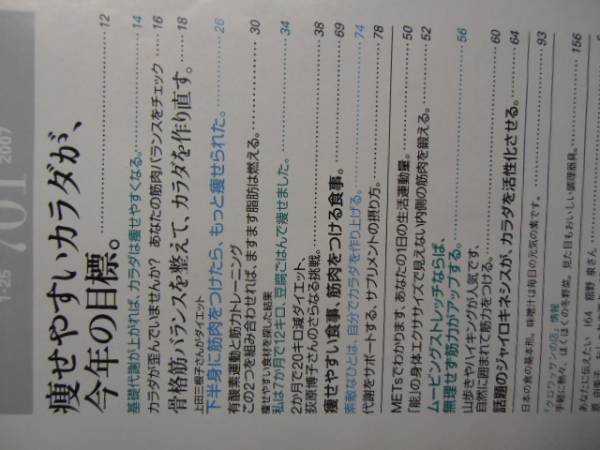 1-25
701
2007
痩せやすいカラダが、
今年の目標。 12
基礎代謝が上がれば、カラダは痩せやすくなる。 14
カラダが歪んでいませんか? あなたの筋肉バランスをチェック 16
骨格筋バランスを整えて、カラダを作り直す。 18
上田三根子さんがダイエット
下半身に筋肉をつけたら、もっと痩せられた。 26
有酸素運動と筋力トレーニング
この2つを組み合わせれば、ますます脂肪は燃える。 30
痩せやすい食材を探した結果
私は7か月で12キロ、豆腐ごはんで痩せました。 34
2か月で20キロ減ダイエット、
荻原博子さんのさらなる挑戦。 38
痩せやすい食事、筋肉をつける食事。 69
素敵なひとは、自分でカラダを作り上げる。 74
代謝をサポートする、サプリメントの摂り方。 78
METsでわかります、あなたの1日の生活運動量。 50
「能」の身体エクササイズで見えない内側の筋肉を鍛える。 52
ムービングストレッチならば、
無理せず筋力がアップする。 56
山歩きやハイキングが人気です、
自然に囲まれて筋力をつける。 60
話題のジャイロキネシスが、カラダを活性化させる。 64
日本の食の基本形。味噌汁は毎日の元気の素です。 93
「クロワッサンの店」情報
手軽に熱々、ほくほくの冬野菜。見た目もおいしい調理器具。 156
あなたに伝えたい 164 舘野 泉さん